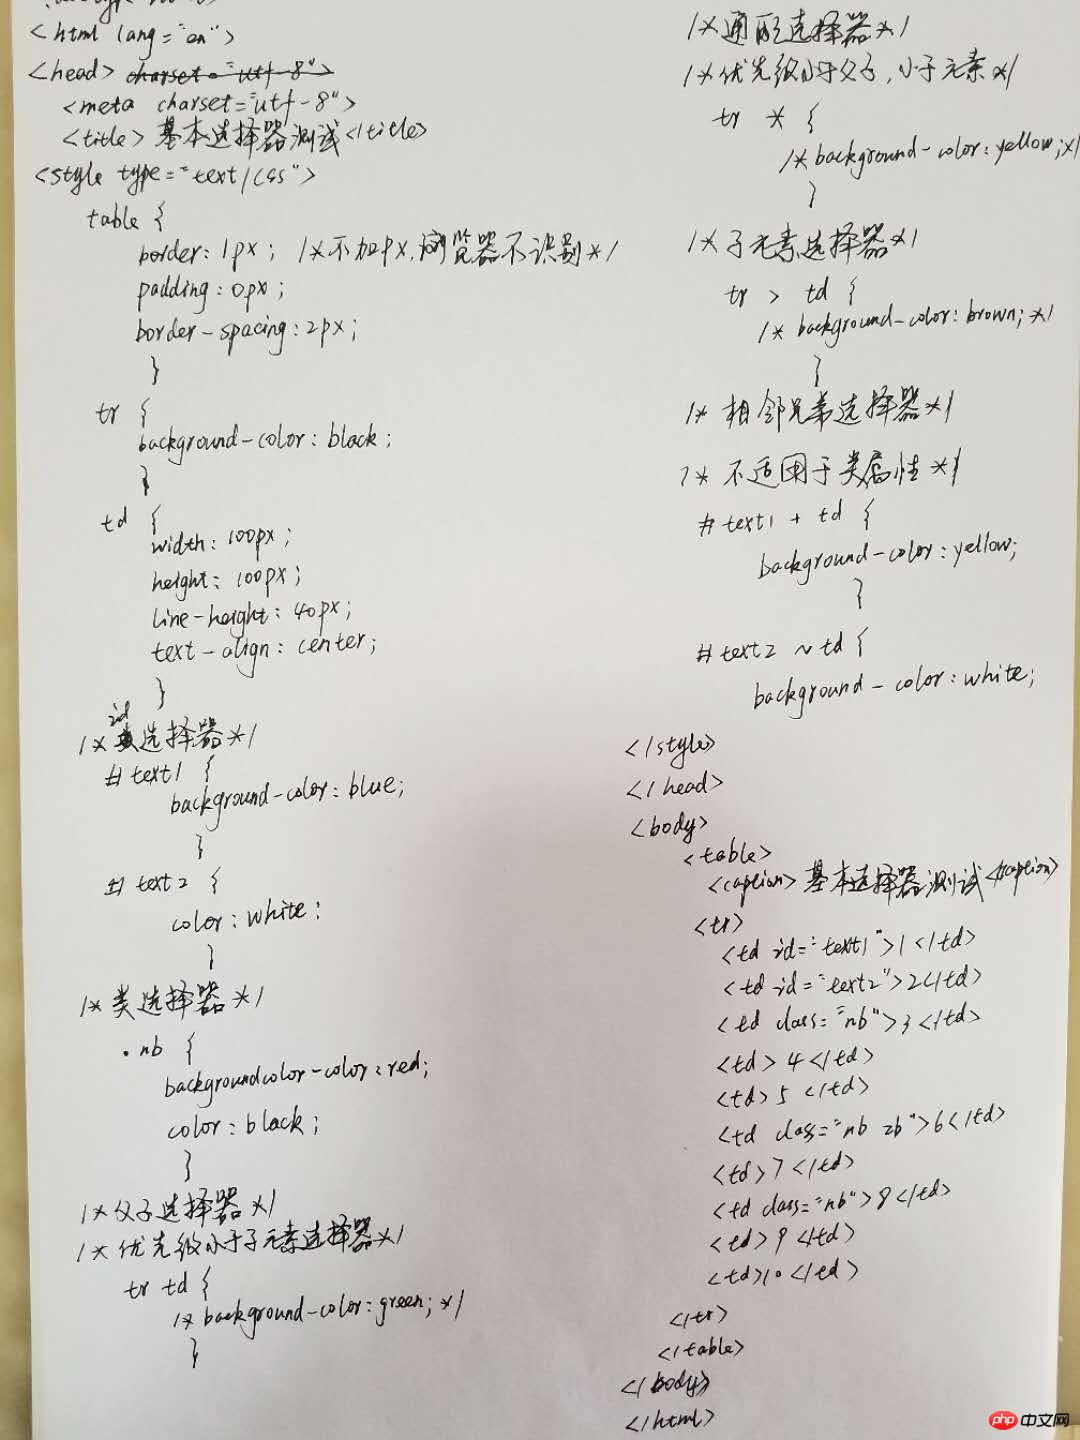 <html lang="en">
<head> charset="utf-8">
<meta charset="utf-8">
<title>基本选择器测试</title>
<style type="text/css">
table {
border: 1px; /*不加px,浏览器不识别*/
padding: 0px;
border-spacing: 2px;
}
tr {
background-color: black;
}
td {
width: 100px;
height: 100px;
line-height: 40px;
text-align: center;
}
/*id选择器*/
#text1 {
background-color: blue;
}
#text2 {
color: white;
}
/*类选择器*/
.nb {
backgroundcolor-color: red;
color: black;
}
/*父子选择器*/
/*优先级小于子元素选择器*/
tr td {
/*background-color: green;*/
}
/*通配选择器*/
/*优先级小于父子,小于元素*/
tr * {
/*background-color: yellow;*/
}
/*子元素选择器*/
tr > td {
/*background-color: brown;*/
}
/*相邻兄弟选择器*/
/*不适用于类属性*/
#text1 + td {
background-color: yellow;
}
#text2 ~ td {
background-color: white;
</style>
</head>
<body>
<table>
<caption>基本选择器测试</caption>
<tr>
<td id="text1">1</td>
<td id="text2">2</td>
<td class="nb">3</td>
<td>4</td>
<td>5</td>
<td class="nb zb">6</td>
<td>7</td>
<td class="nb">8</td>
<td>9</td>
<td>10</td>
</tr>
</table>
</body>
</html>
php中文网